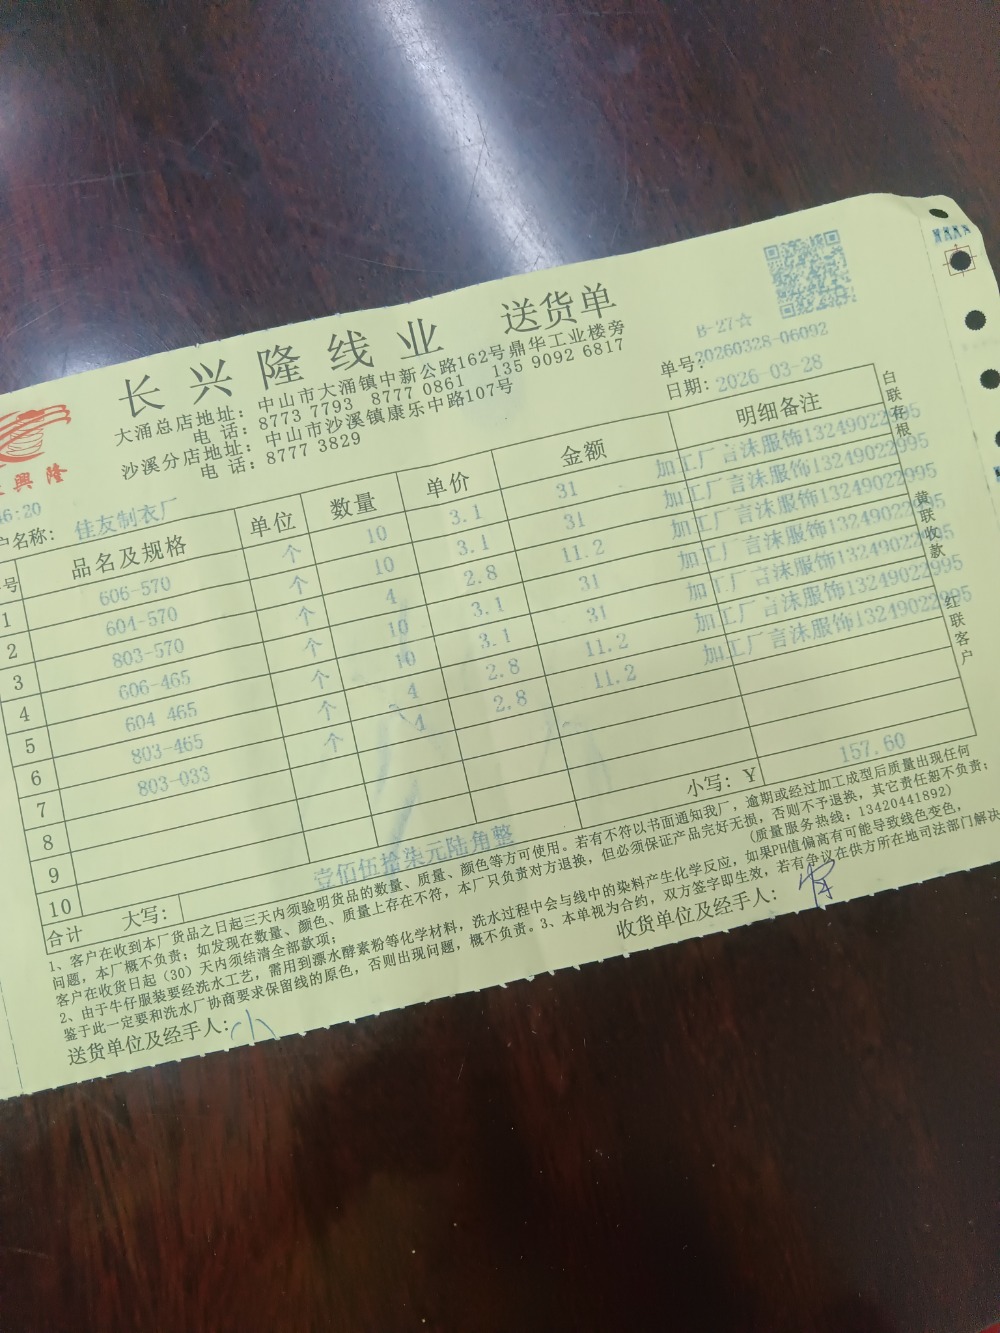 长兴隆线业 送货单
B-27☆
大涌总店地址：中山市大涌镇中新公路162号鼎华工业楼旁
电 话：8773 7793 8777 0861 135 9092 6817
沙溪分店地址：中山市沙溪镇康乐中路107号
电 话：8777 3829
单号:20260328-06092
日期: 2026-03-28
興隆
46:20
户名称: 佳友制衣厂
号 品名及规格 单位 数量 单价 金额 明细备注
1 606-570 个 10 3.1 31 加工厂言沫服饰13249022995
2 604-570 个 10 3.1 31 加工厂言沫服饰13249022995
3 803-570 个 4 2.8 11.2 加工厂言沫服饰13249022995
4 606-465 个 10 3.1 31 加工厂言沫服饰13249022995
5 604 465 个 10 3.1 31 加工厂言沫服饰13249022995
6 803-465 个 4 2.8 11.2 加工厂言沫服饰13249022995
7 803-033 个 4 2.8 11.2 加工厂言沫服饰13249022995
8
9
10
小写: Y 157.60
合计 大写: 壹佰伍拾柒元陆角整
白联存根 黄联收款 红联客户
1、客户在收到本厂货品之日起三天内须验明货品的数量、质量、颜色等方可使用。若有不符以书面通知我厂，逾期或经过加工成型后质量出现任何
问题，本厂概不负责；如发现在数量、颜色、质量上存在不符，本厂只负责对方退换，但必须保证产品完好无损，否则不予退换，其它责任恕不负责；
客户在收货日起（30）天内须结清全部款项； (质量服务热线：13420441892)
2、由于牛仔服装要经洗水工艺，需用到漂水酵素粉等化学材料，洗水过程中会与线中的染料产生化学反应，如果PH值偏离有可能导致线色变色，
鉴于此一定要和洗水厂协商要求保留线的原色，否则出现问题，概不负责。3、本单视为合约，双方签字即生效，若有争议在供方所在地司法部门解决
送货单位及经手人: 小
收货单位及经手人: